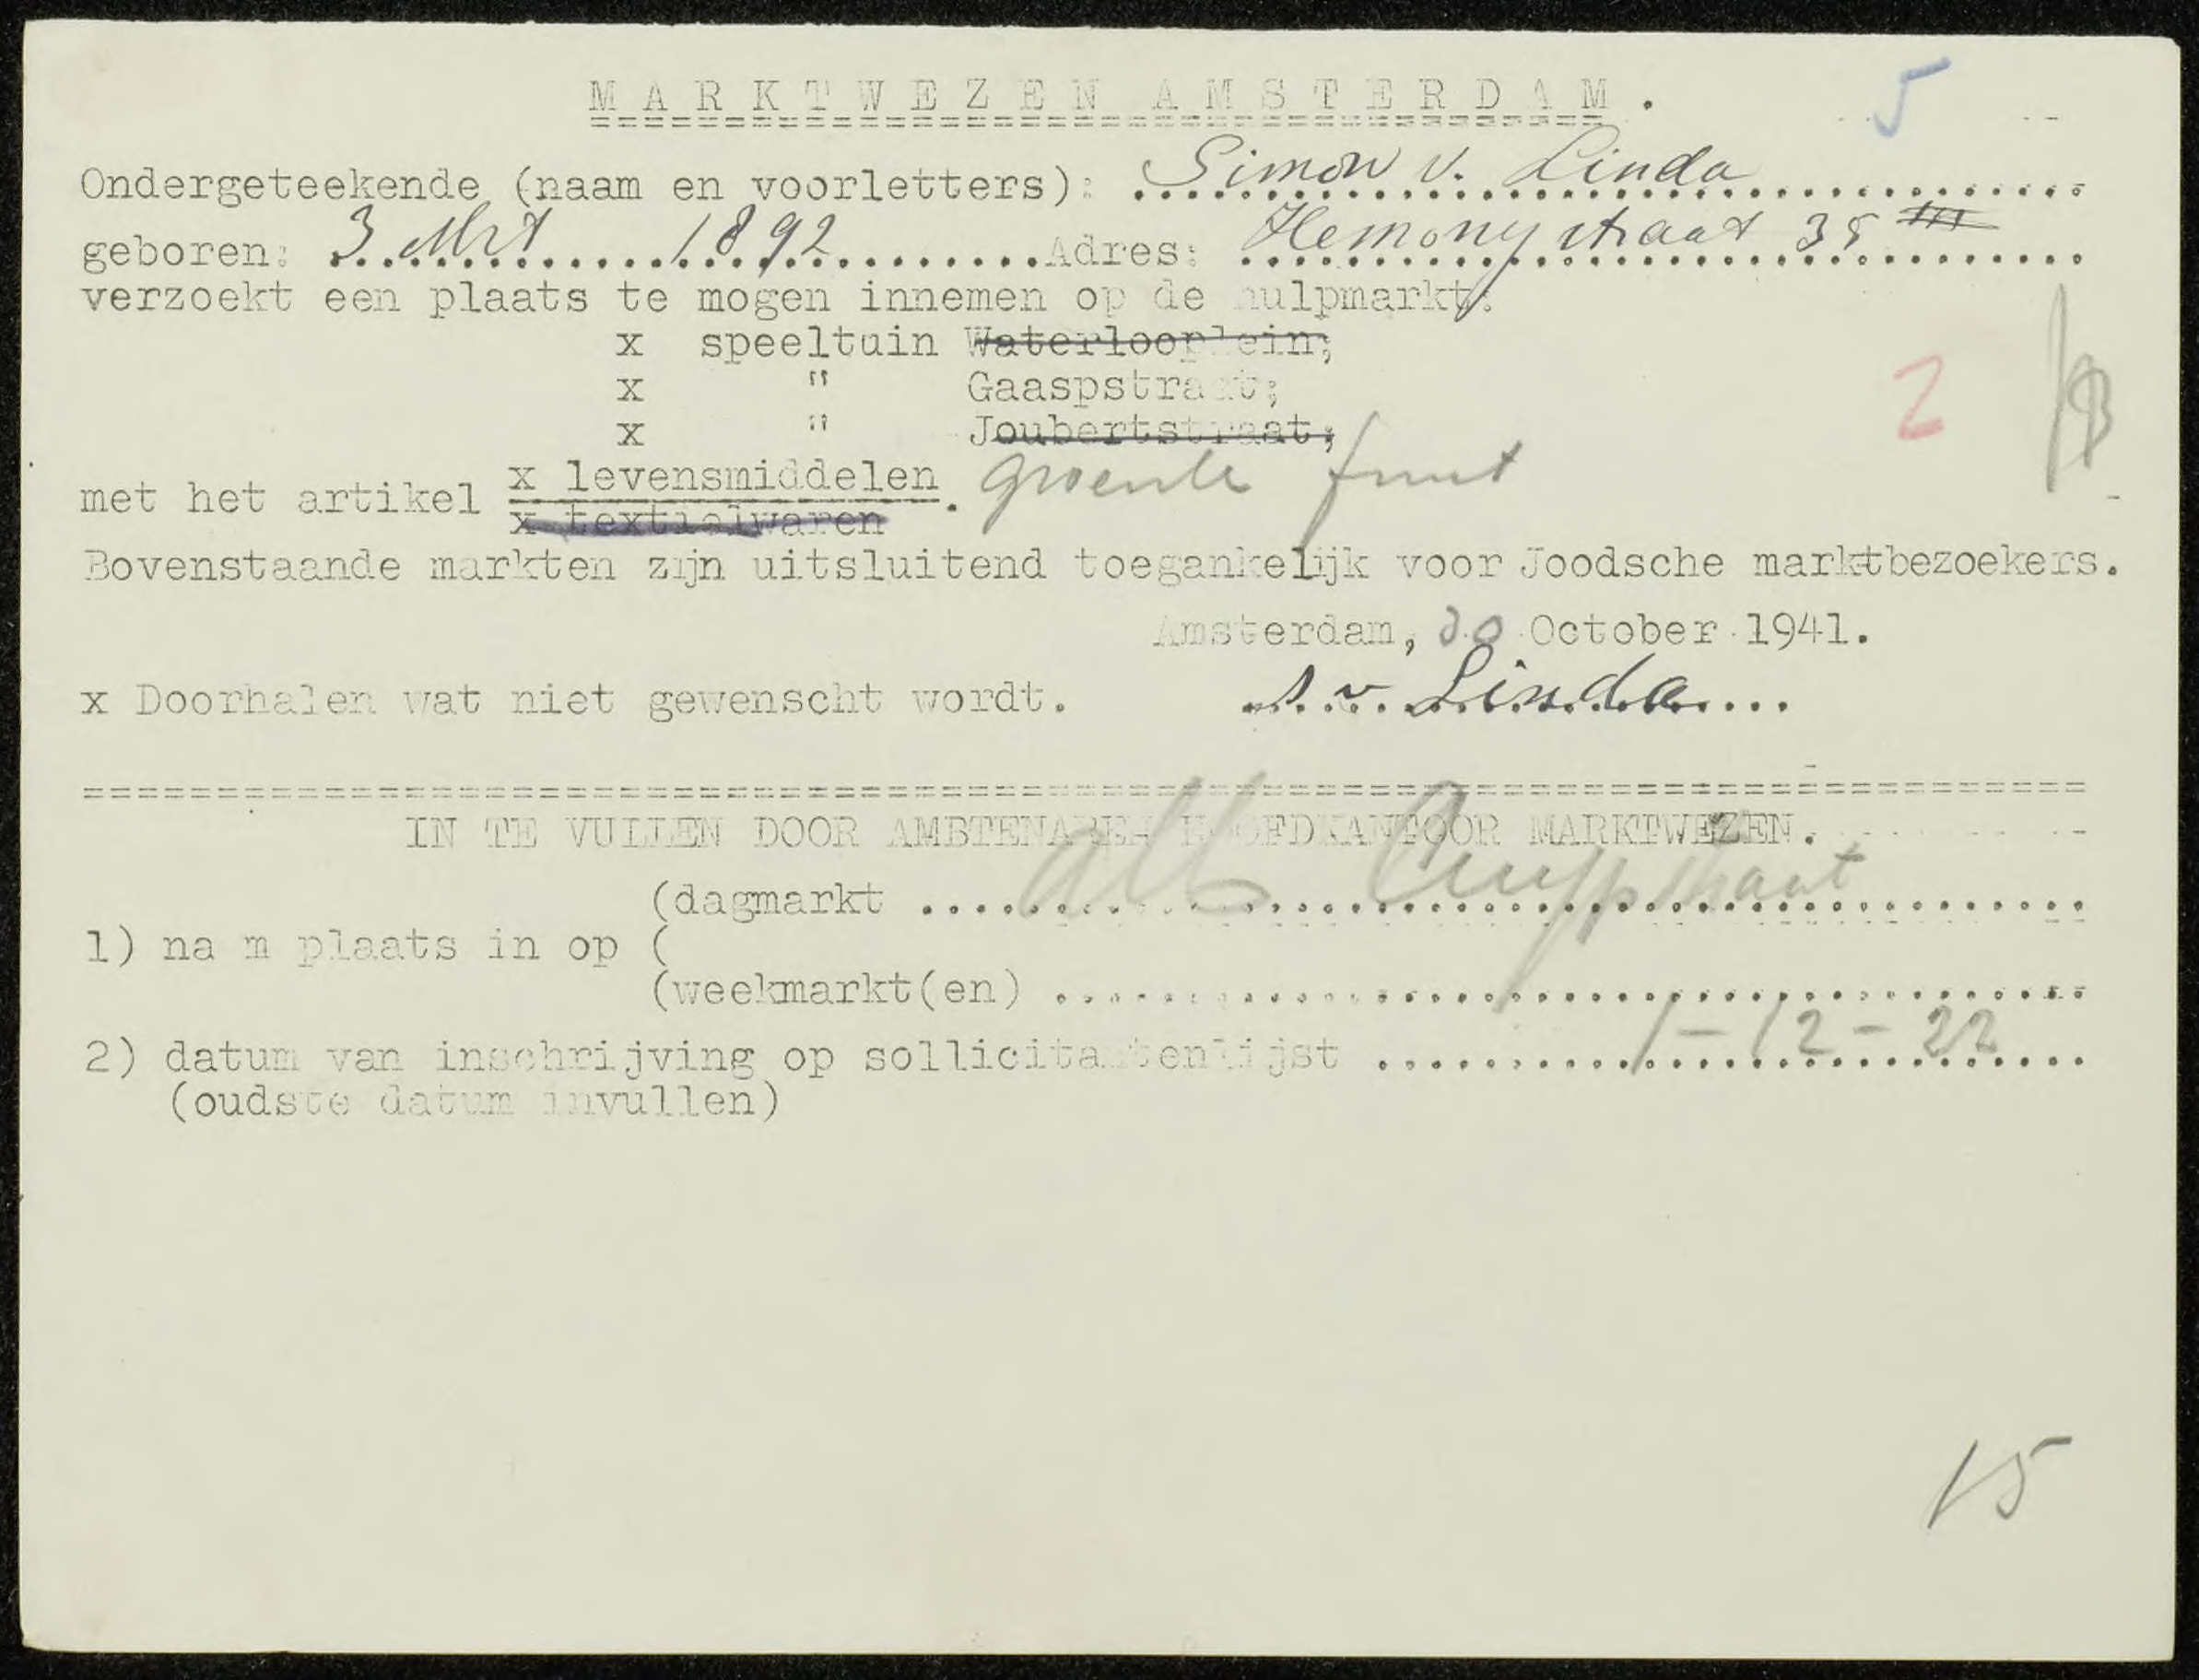 MARKTWEZEN AMSTERDAM.
5
Ondergeteekende (naam en voorletters): Simon v. Linda
geboren: 3 Mrt 1892 Adres: Hemonystraat 38 III
verzoekt een plaats te mogen innemen op de hulpmarkt:
x speeltuin Waterlooplein;
x " Gaaspstraat;
x " Joubertstraat;
2
met het artikel x levensmiddelen. groente fruit
x textielwaren
Bovenstaande markten zijn uitsluitend toegankelijk voor Joodsche marktbezoekers.
Amsterdam, 30 October 1941.
x Doorhalen wat niet gewenscht wordt. S. v. Linda
IN TE VULLEN DOOR AMBTENAREN HOOFDKANTOOR MARKTWEZEN.
(dagmarkt Alb Cuypstraat
1) nam plaats in op (
(weekmarkt(en)
2) datum van inschrijving op sollicitantenlijst 1-12-22
(oudste datum invullen)
15